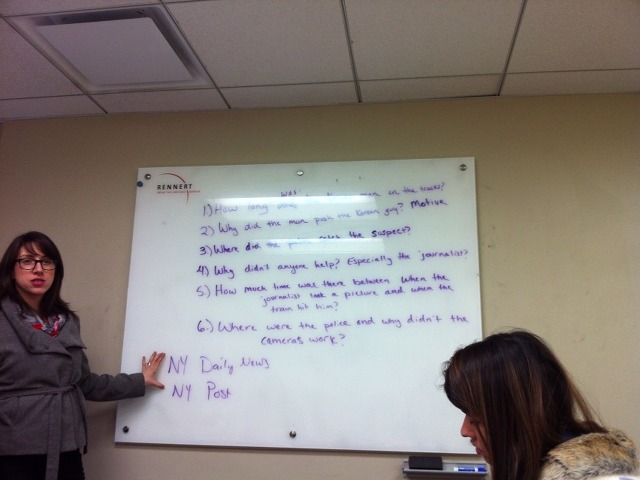 RENNERT
was man on the tracks?
1) How long
2) Why did the man push the Korean guy? Motive
3) Where did the police the suspect?
4) Why didn't anyone help? Especially the journalist?
5.) How much time was there between when the
journalist took a picture and when the
train hit him?
6.) Where were the police and why didn't the
cameras work?
NY Daily News
NY Post